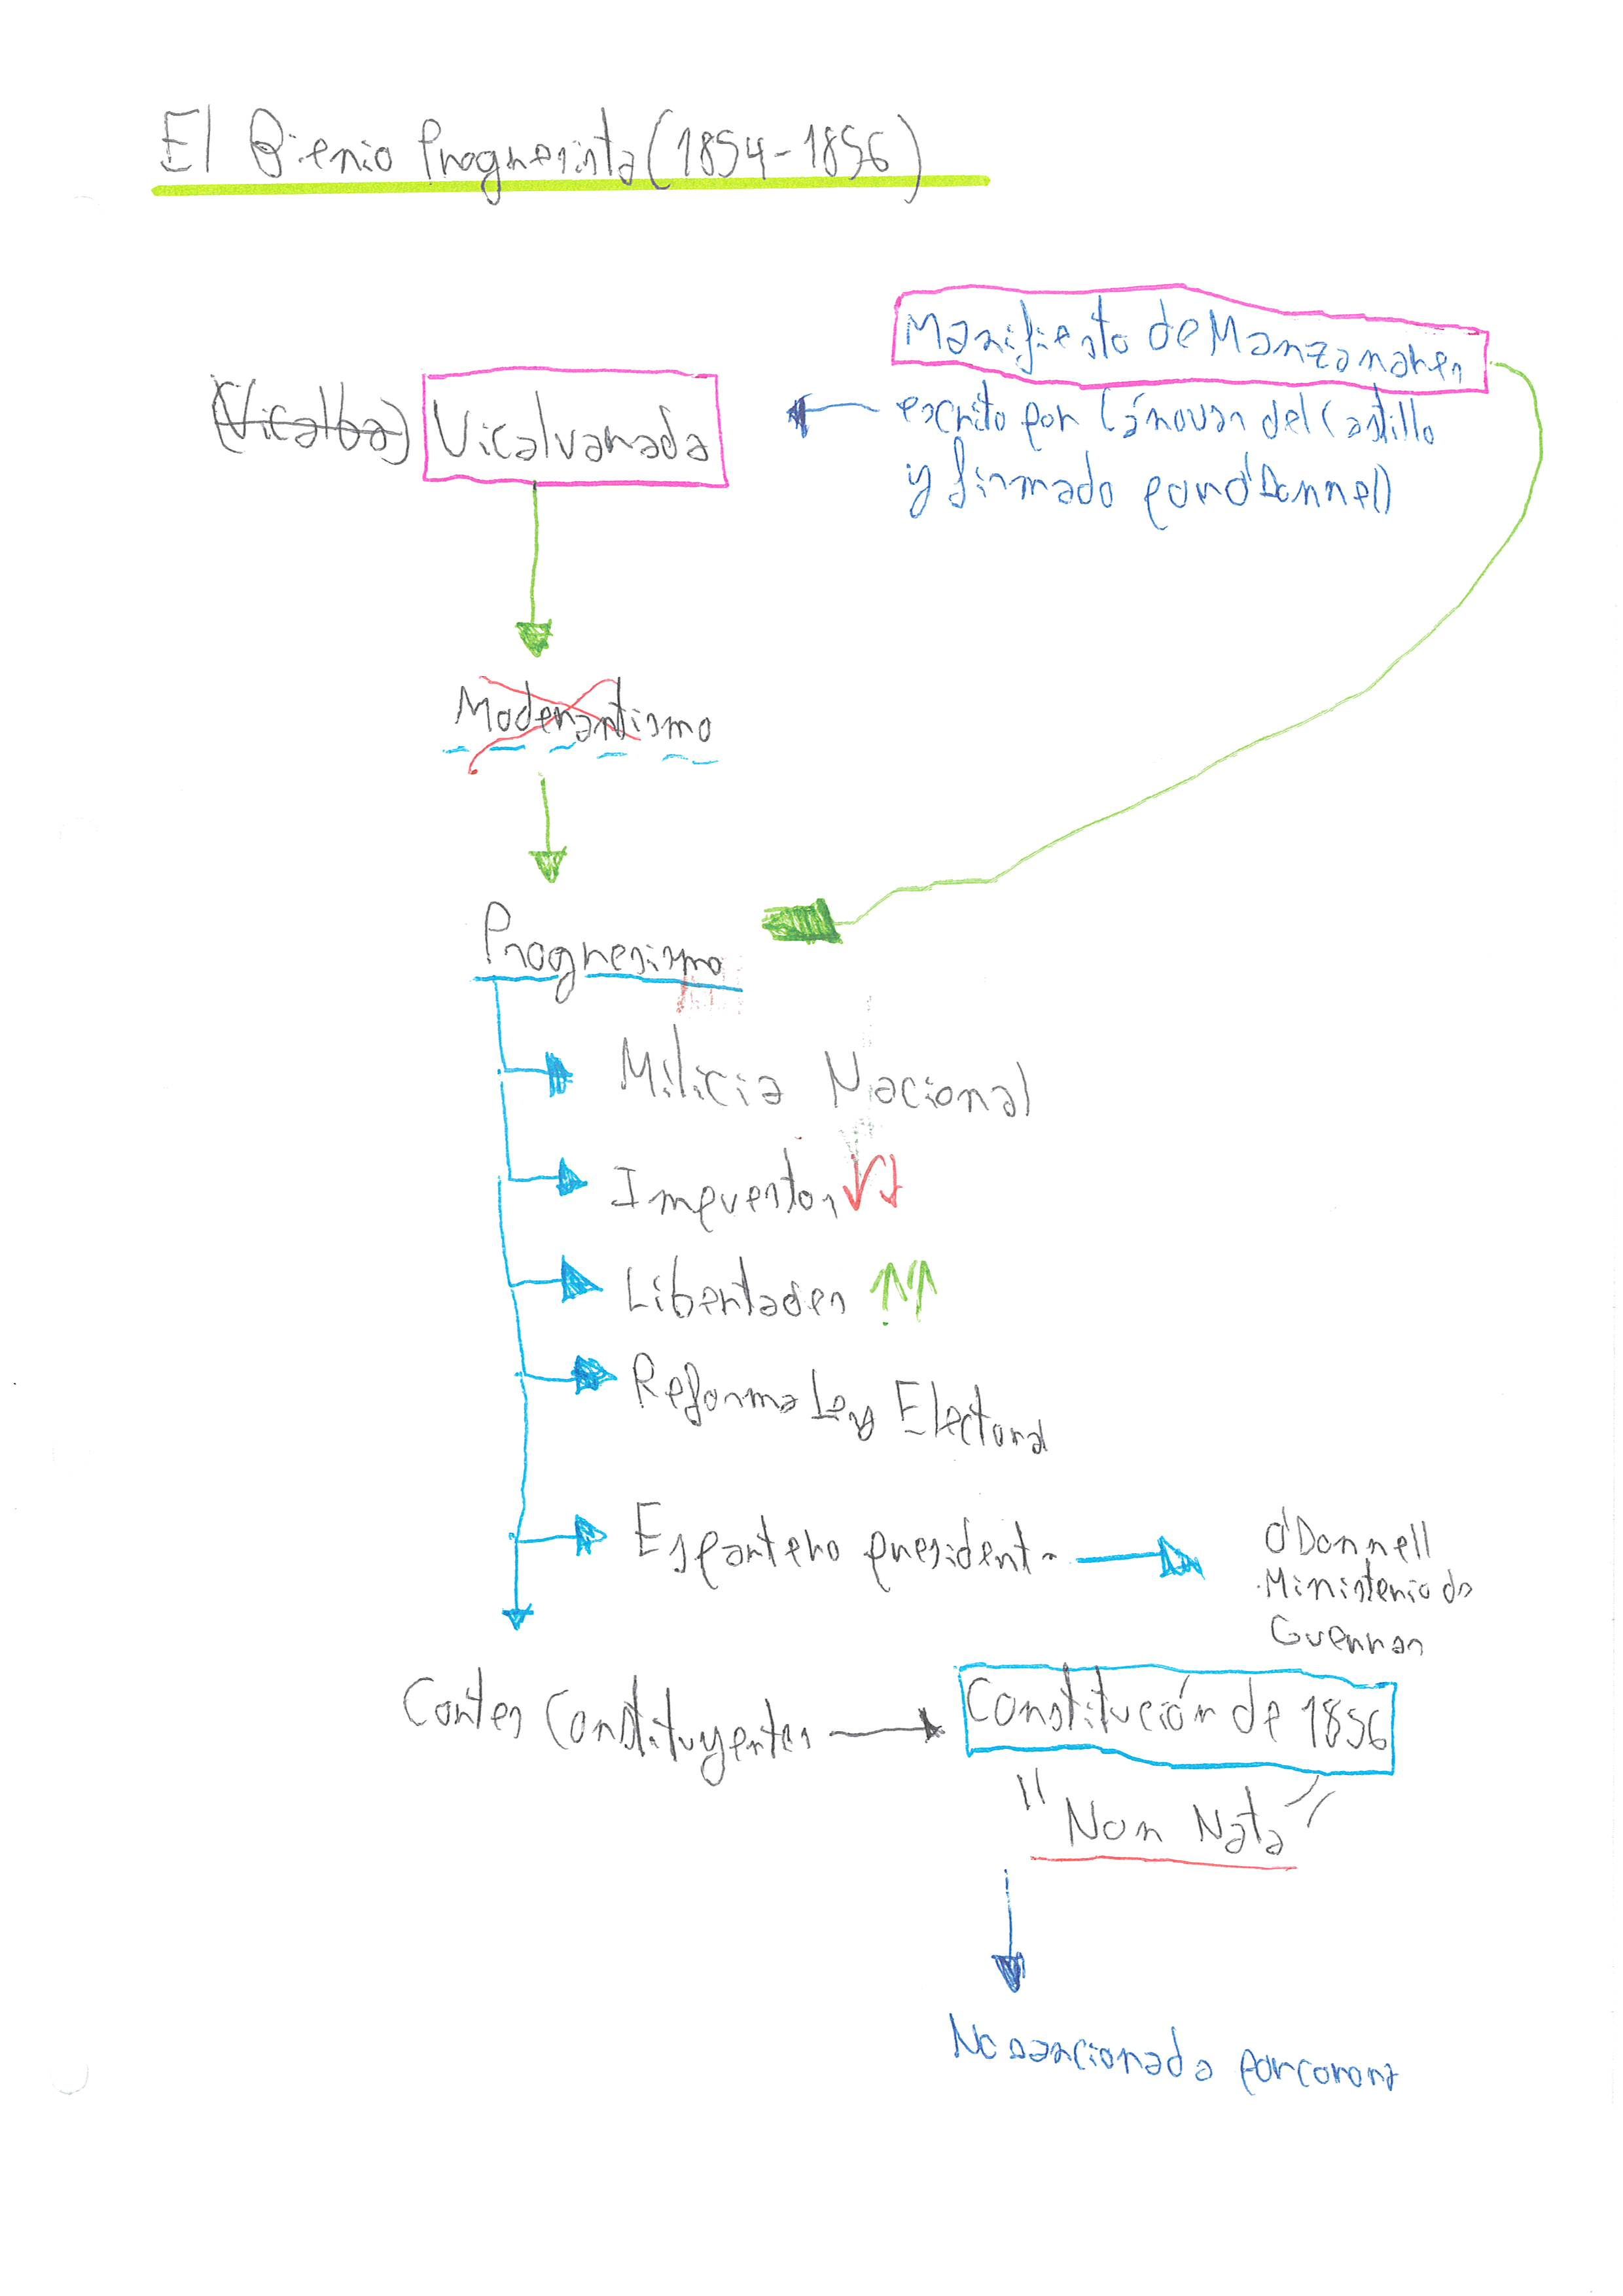 El Bienio Progresista (1854-1856)
Manifiesto de Manzanares
(Vicalba) Vicalvarada
escrito por Cánovas del Castillo
y firmado por O'Donnell
Moderantismo
Progresismo
Milicia Nacional
Impuestos ↓↓
Libertades ↑↑
Reforma Ley Electoral
Espartero presidente
O'Donnell
Ministerio de
Guerras
Cortes Constituyentes
Constitución de 1856
"Non Nata"
No sancionada por corona